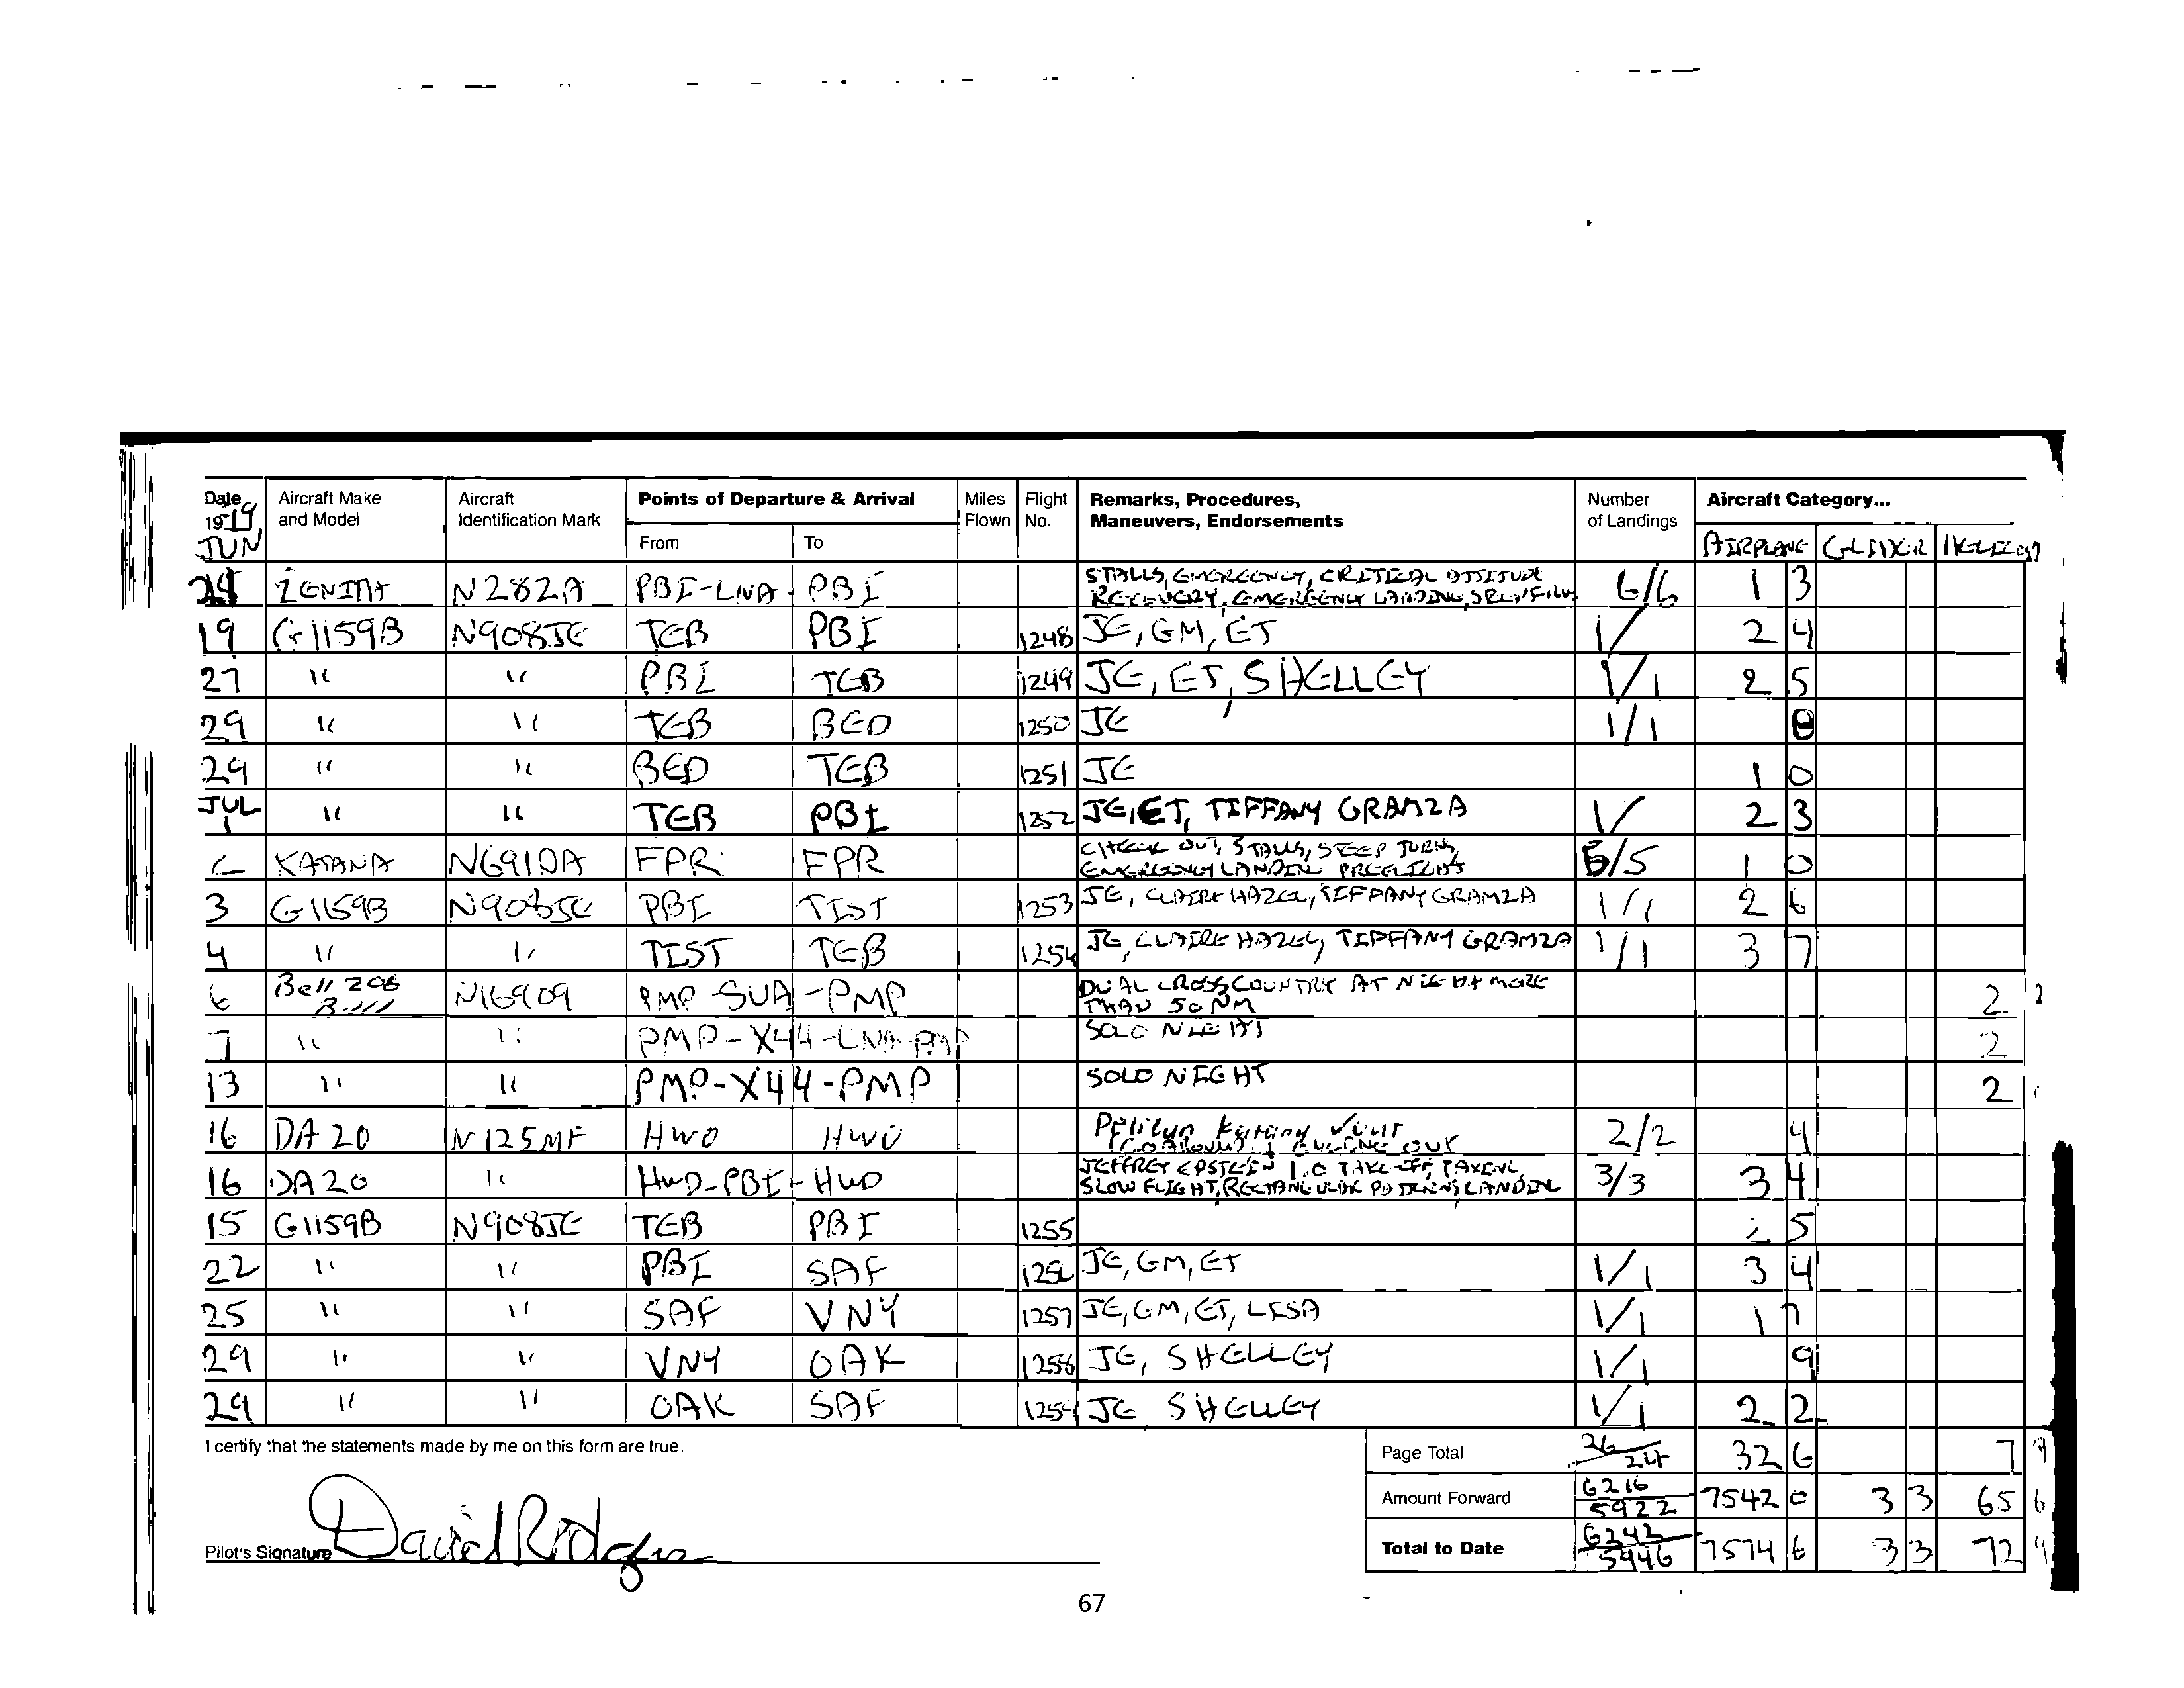 Date Aircraft Make and Model Aircraft Identification Mark Points of Departure & Arrival Miles Flown Flight No. Remarks, Procedures, Maneuvers, Endorsements Number of Landings Aircraft Category...
19
JUN From To AIRPLANE
N282A PBI-LNA- PBI STALLS, EMERGENCY, CRITICAL ATTITUDE 6/6 1 3
RECOVERY, EMERGENCY LANDING,
19 G1159B N908JE TEB PBI 1248 JE, GM, ET 1/ 2 4
27 " " PBI TEB 1249 JE, ET, SHELLEY 1/1 2 5
29 " " TEB BED 1250 JE 1/1
29 " " BED TEB 1251 JE 1 0
JUL
1 " " TEB PBI 1252 JE, ET, TIFFANY GRAMZA 1/ 2 3
KATANA N691DA FPR FPR CHECK OUT, STALLS, STEEP TURNS, 5/5 1 0
3 G1159B N908JE PBI TIST 1253 JE, CLAIRE HAZEL, TIFFANY GRAMZA 1/1 2 6
4 " " TIST TEB 1254 JE, CLAIRE HAZEL, TIFFANY GRAMZA 1/1 3 7
6 Bell 206 N16909 PMP-SUA-PMP DUAL CROSS COUNTRY AT NIGHT MORE 2 2
THAN 50 NM
7 " " PMP-X44-LNA-PMP SOLO NIGHT 2
13 " " PMP-X44-PMP SOLO NIGHT 2
16 DA20 N125MF HWO HWO 2/2 4
16 DA20 " HWO-PBI-HWO JEFFREY EPSTEIN 1.0 TAKE OFF, TAXING, 3/3 3 4
SLOW FLIGHT, RECTANGULAR PATTERNS LANDING
15 G1159B N908JE TEB PBI 1255 2 5
22 " " PBI SAF 1256 JE, GM, ET 1/1 3 4
25 " " SAF VNY 1257 JE, GM, ET, LISA 1/1 1 7
29 " " VNY OAK 1258 JE, SHELLEY 1/1 9
29 " " OAK SAF 1259 JE SHELLEY 1/1 2 2
I certify that the statements made by me on this form are true. Page Total 26/24 32 6 7
Amount Forward 6216/5922 7542 0 3 3 65 6
Pilot's Signature David Rodgers Total to Date 6242/5946 7574 6 3 3 72
67